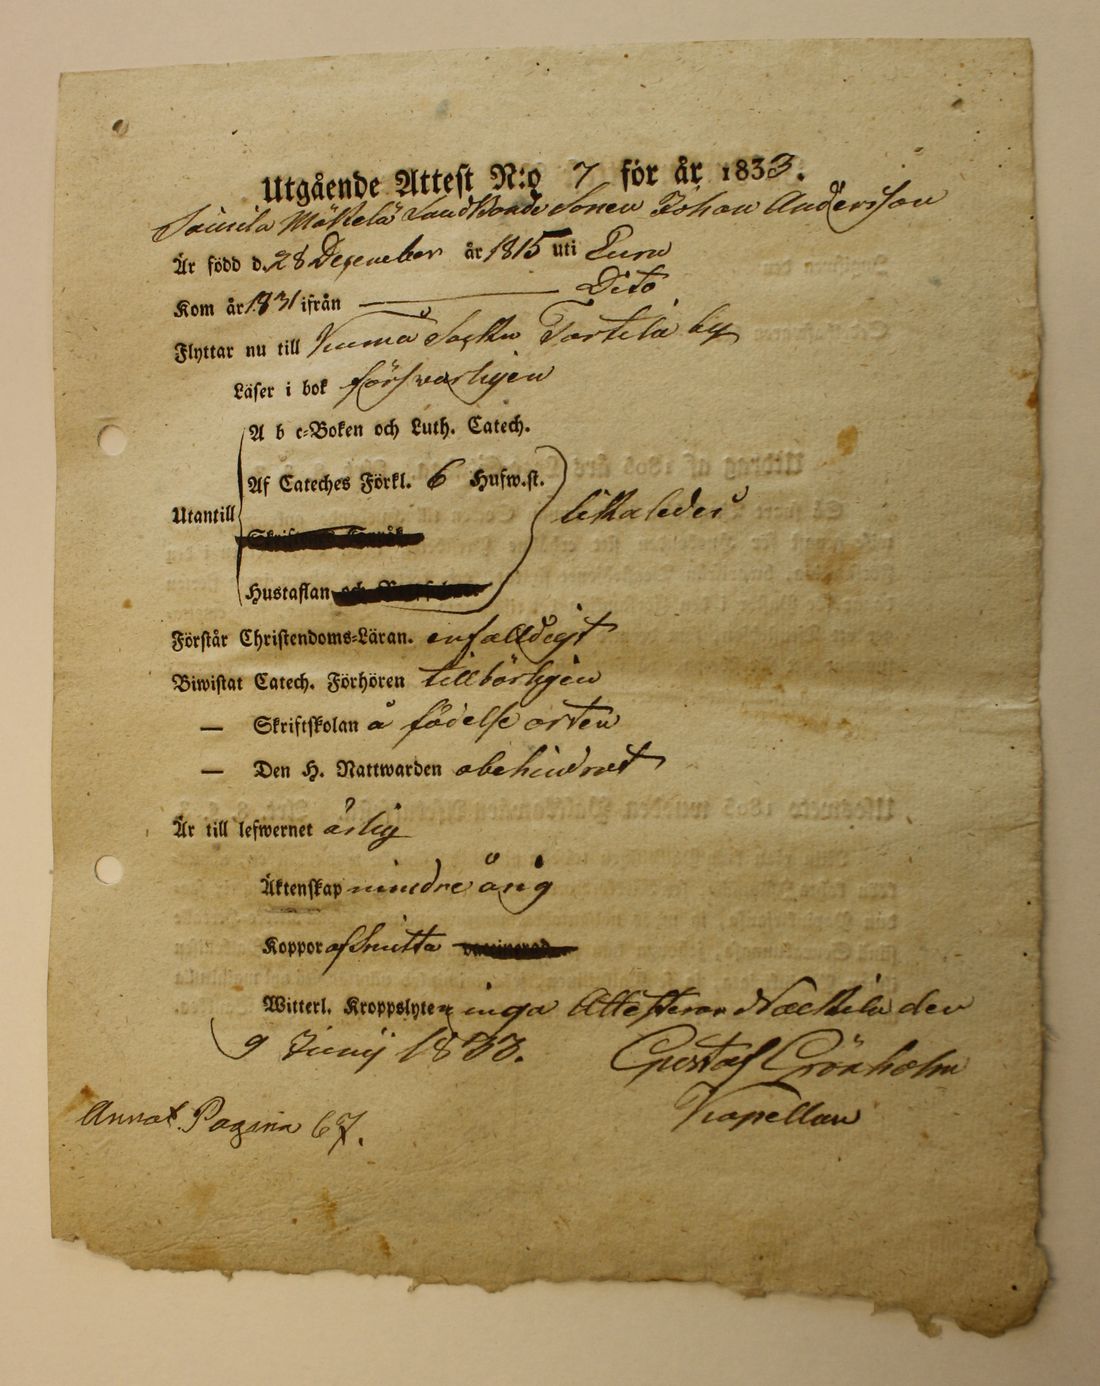 Utgående Attest N:o 7 för år 1833.
Säkylä Mäkelä Landbonde Sonen Johan Andersson
Är född d. 28 December år 1815 uti Eura
Kom år 1831 ifrån — Dito
Flyttar nu till Virmo Sockn Tortila by
Läser i bok försvarligen
A b c-Boken och Luth. Catech.
Af Cateches Förkl. 6 Hufw.st.
Utantill likaledes
Hustaflan
Förstår Christendoms-Läran. enfalldigt
Biwistat Catech. Förhören tillbörligen
— Skriftskolan å födelse orten
— Den H. Nattwarden obehindrat
Är till lefwernet ärlig
Äktenskap minderårig
Koppor afsmitta
Witterl. Kroppslyten inga Attesterar Nackila den
9 Junij 1833. Gustaf Grönholm
Kapellan
Annot. Pagina 67.